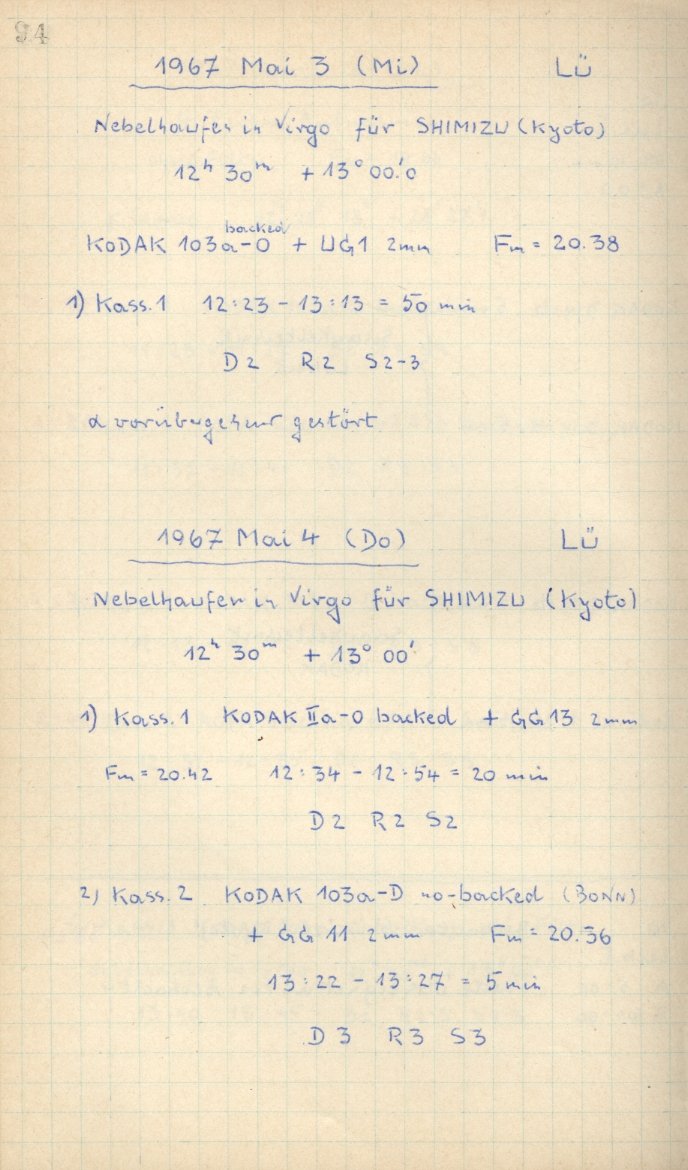 94
1967 Mai 3 (Mi) LÜ
Nebelhaufen in Virgo für SHIMIZU (Kyoto)
12ʰ 30ᵐ + 13° 00.'0
backed
KODAK 103a-O + UG1 2mm Fm = 20.38
1) Kass. 1 12:23 - 13:13 = 50 min
D2 R2 S2-3
α vorübergehend gestört
1967 Mai 4 (Do) LÜ
Nebelhaufen in Virgo für SHIMIZU (Kyoto)
12ʰ 30ᵐ + 13° 00'
1) Kass. 1 KODAK IIa-O backed + GG13 2mm
Fm = 20.42 12:34 - 12:54 = 20 min
D2 R2 S2
2) Kass. 2 KODAK 103a-D no-backed (BONN)
+ GG 11 2mm Fm = 20.36
13:22 - 13:27 = 5 min
D3 R3 S3